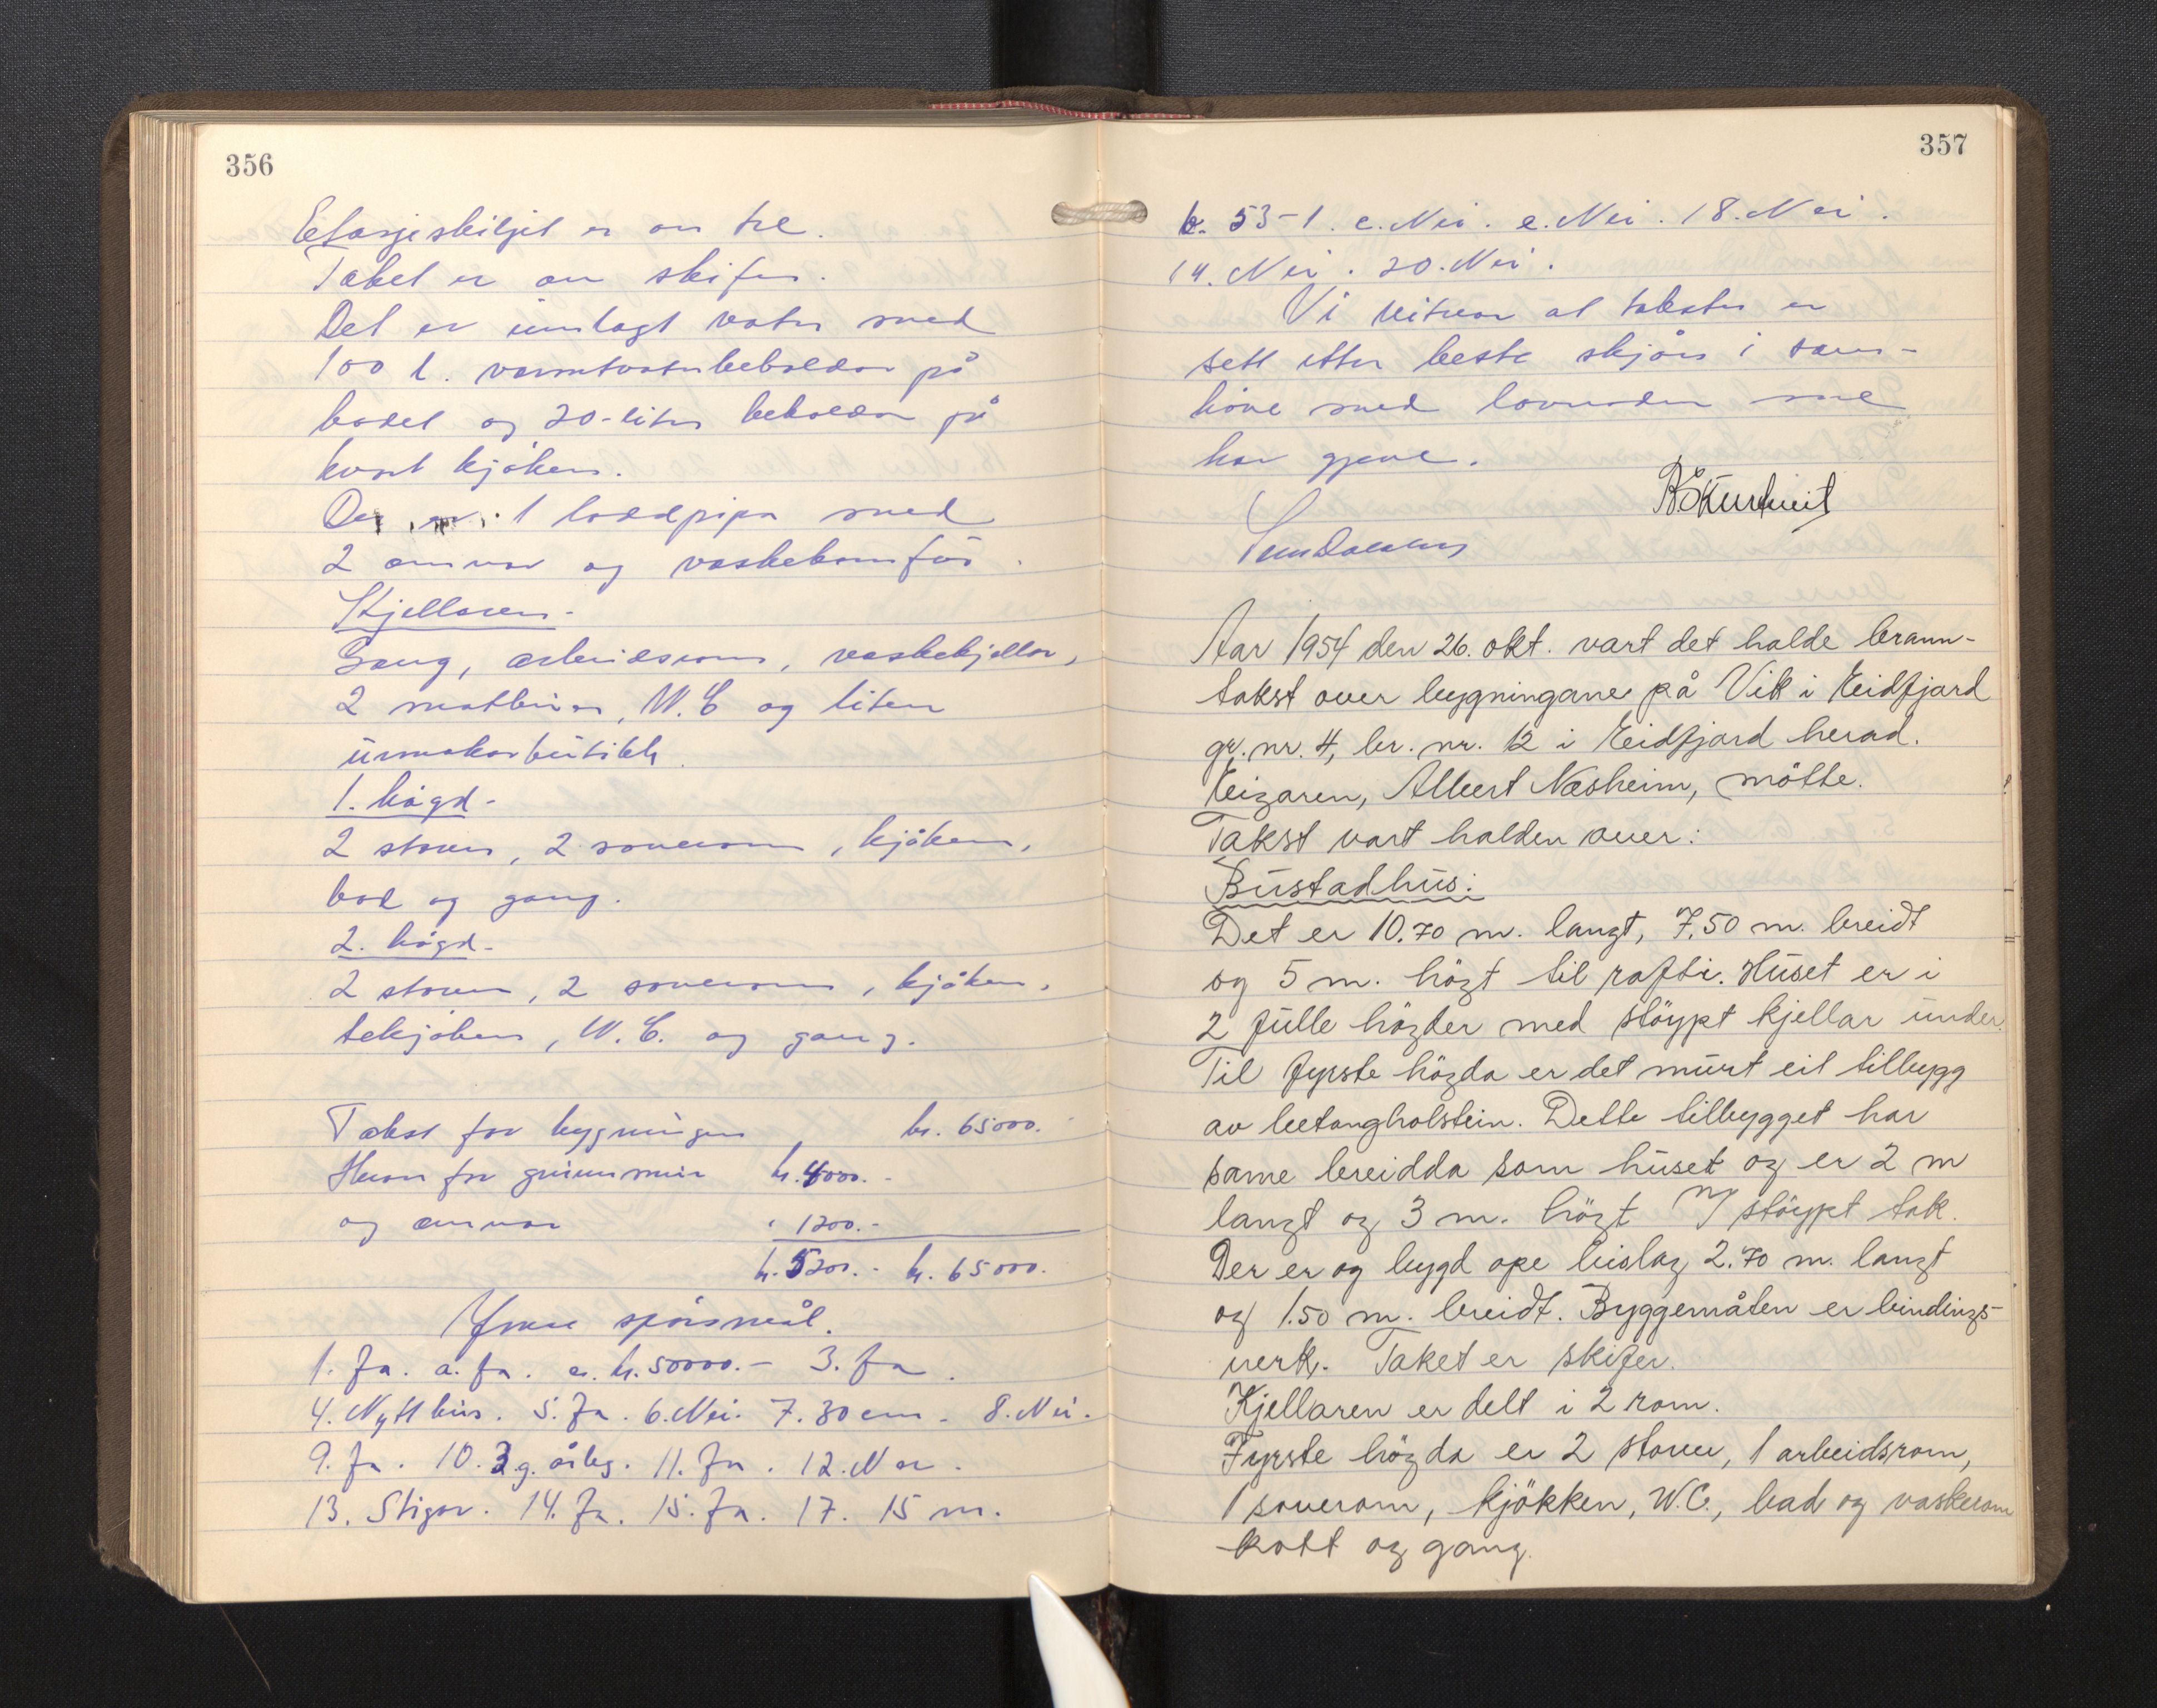 356
Etasjeskiljet er av tre.
Taket er av skifer.
Det er innlagt vatn med
100 l. varmtvatnbehaldar på
badet og 30-liter behaldar på
kvart kjøken.
Det er 1 loddpipa med
2 omnar og vaskekomfür.
Kjellaren-
Gang, arbeidsrom, vaskekjellar,
2 matbuer, W.C og liten
ürmakarbutikk.
1. högd-
2 stover, 2 soverom, kjöken,
bad og gang.
2. högd-
2 stover, 2 soverom, kjöken,
tekjöken, W.C. og gang.
Takst for bygningen kr. 65000.
Herav for grunnmur kr. 4000.-
og omnar " 1200.-
kr. 5200.- kr. 65000.
Ymse spörsmål.
1. Ja. a. Ja. c. kr. 50000.- 3. Ja.
4. Nytt hus. 5. Ja. 6. Nei. 7. 30 cm. 8. Nei.
9. Ja. 10. 3 g. årleg. 11. Ja. 12. Nei.
13. Stigar. 14. Ja. 15. Ja. 17. 15 m.
357
b. 53-1. c. Nei. e. Nei. 18. Nei.
19. Nei. 20. Nei.
Vi vitnar at taksten er
sett etter beste skjön i sam-
höve med lovnaden me
har gjeve.
Aar 1954 den 26. okt. vart det halde brann-
takst over bygningane på Vik i Eidfjard
gr. nr. 4, br. nr. 12 i Eidfjard herad.
Eigaren, Albert Næsheim, mötte.
Takst vart halden over:
Büstadhüs:
Det er 10.70 m. langt, 7.50 m. breidt
og 5 m. högt til rafti. Hüset er i
2 fülle högder med stöypt kjellar ünder.
Til fyrste högda er det mürt eit tilbygg
av betongholstein. Dette tilbygget har
same breidda som hüset og er 2 m
langt og 3 m. högt m/ stöypt tak.
Der er og bygd ope bislag 2.70 m. langt
og 1.50 m. breidt. Byggemåten er bindings-
verk. Taket er skifer.
Kjellaren er delt i 2 rom.
Fyrste högda er 2 stover, 1 arbeidsrom,
1 soverom, kjökken, W.C., bad og vaskerom
kott og gang.